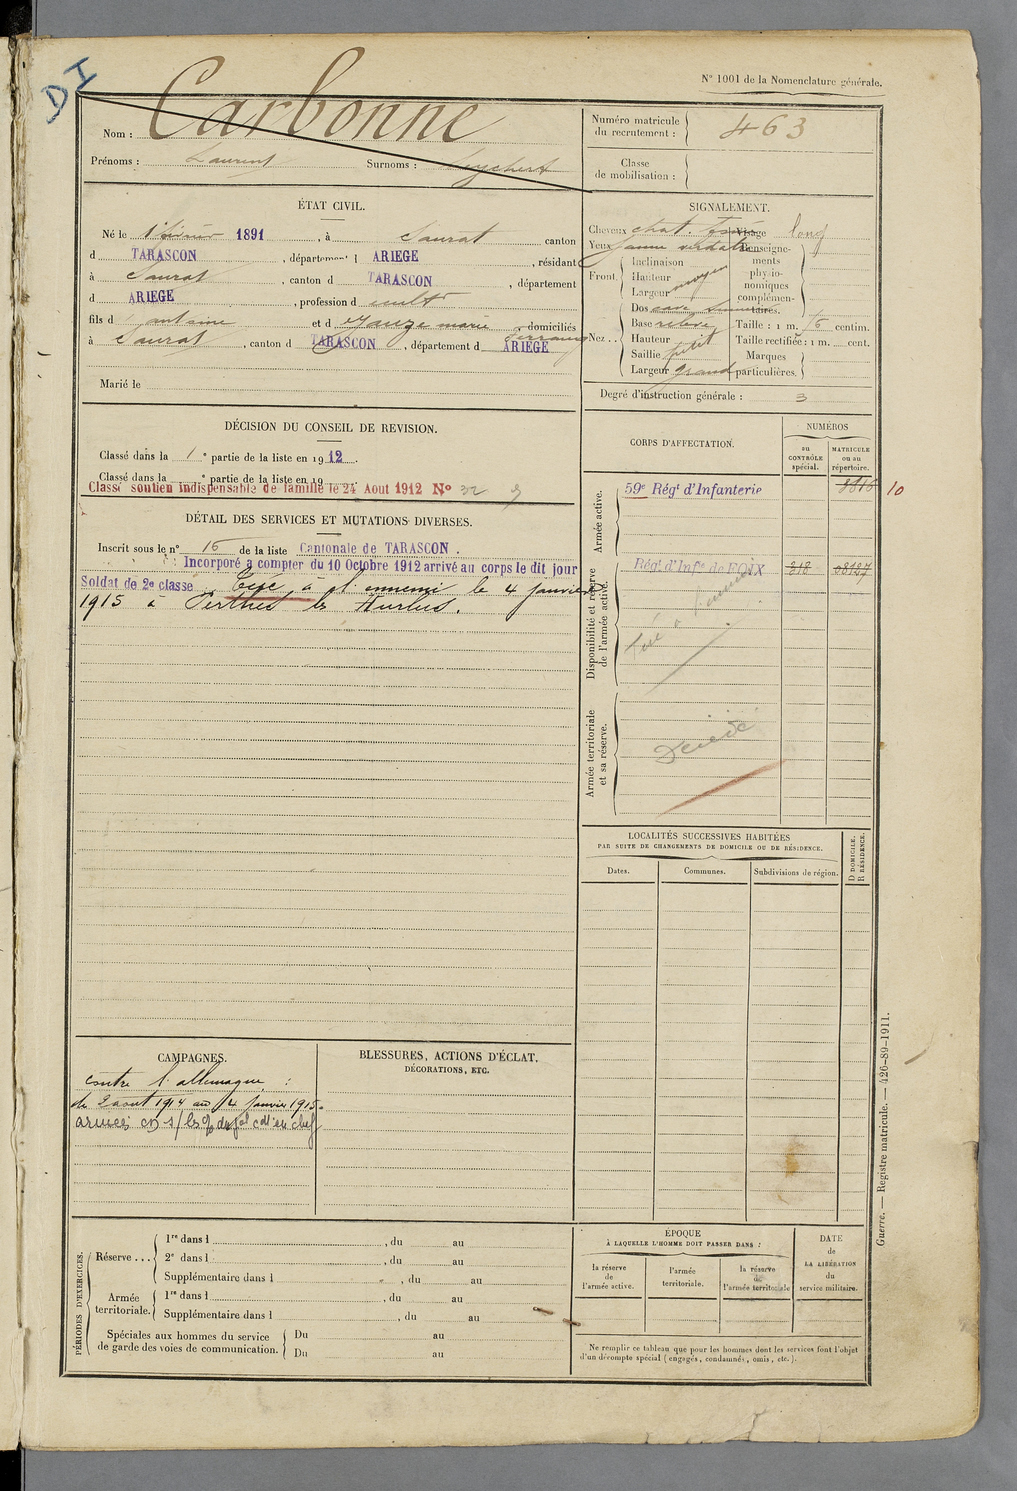 DI
N° 1001 de la Nomenclature générale.
Nom : Carbonne
Prénoms : Laurent Surnoms :
Numéro matricule du recrutement : 463
Classe de mobilisation :
ÉTAT CIVIL.
Né le février 1891, à Saurat canton
d TARASCON, département d ARIEGE, résidant
à Saurat, canton d TARASCON, département
d ARIEGE, profession d cultr
fils d antoine et d marie domiciliés
à Saurat, canton d TARASCON, département d ARIEGE
Marié le
SIGNALEMENT.
Cheveux chat. Visage long
Yeux jaune verdatre Renseignements physionomiques complémentaires.
Front. Inclinaison
Hauteur moyen
Largeur
Nez... Dos cave
Base relevé Taille : 1 m. centim.
Hauteur Taille rectifiée : 1 m. cent.
Saillie petit Marques particulières.
Largeur grand
Degré d'instruction générale : 3
DÉCISION DU CONSEIL DE REVISION.
Classé dans la 1e partie de la liste en 1912.
Classé dans la e partie de la liste en 19
Classé soutien indispensable de famille le 24 Aout 1912 N° 32
DÉTAIL DES SERVICES ET MUTATIONS DIVERSES.
Inscrit sous le n° de la liste Cantonale de TARASCON.
Incorporé à compter du 10 Octobre 1912 arrivé au corps le dit jour
Soldat de 2e classe. Tué à l'ennemi le 4 janvier
1915 à Perthes les Hurlus.
CORPS D'AFFECTATION.
NUMÉROS
au CONTRÔLE spécial.
MATRICULE ou au répertoire.
Armée active.
59e Régt d'Infanterie 10
Disponibilité et réserve de l'armée active.
Régt d'Infie de FOIX 218 08187
Tué à l'ennemi
Armée territoriale et sa réserve.
Décédé
LOCALITÉS SUCCESSIVES HABITÉES
PAR SUITE DE CHANGEMENTS DE DOMICILE OU DE RÉSIDENCE.
Dates. Communes. Subdivisions de région. D DOMICILE. R RÉSIDENCE.
CAMPAGNES.
contre l'allemagne :
du 2 aout 1914 au 4 janvier 1915.
BLESSURES, ACTIONS D'ÉCLAT,
DÉCORATIONS, ETC.
PÉRIODES D'EXERCICES.
Réserve... 1re dans l , du au
2e dans l , du au
Supplémentaire dans l , du au
Armée territoriale. 1re dans l , du au
Supplémentaire dans l , du au
Spéciales aux hommes du service de garde des voies de communication. Du au
Du au
ÉPOQUE
À LAQUELLE L'HOMME DOIT PASSER DANS :
la réserve de l'armée active.
l'armée territoriale.
la réserve de l'armée territoriale
DATE de LA LIBÉRATION du service militaire.
Ne remplir ce tableau que pour les hommes dont les services font l'objet
d'un décompte spécial (engagés, condamnés, omis, etc.).
Guerre. — Registre matricule. — 426-89-1911.